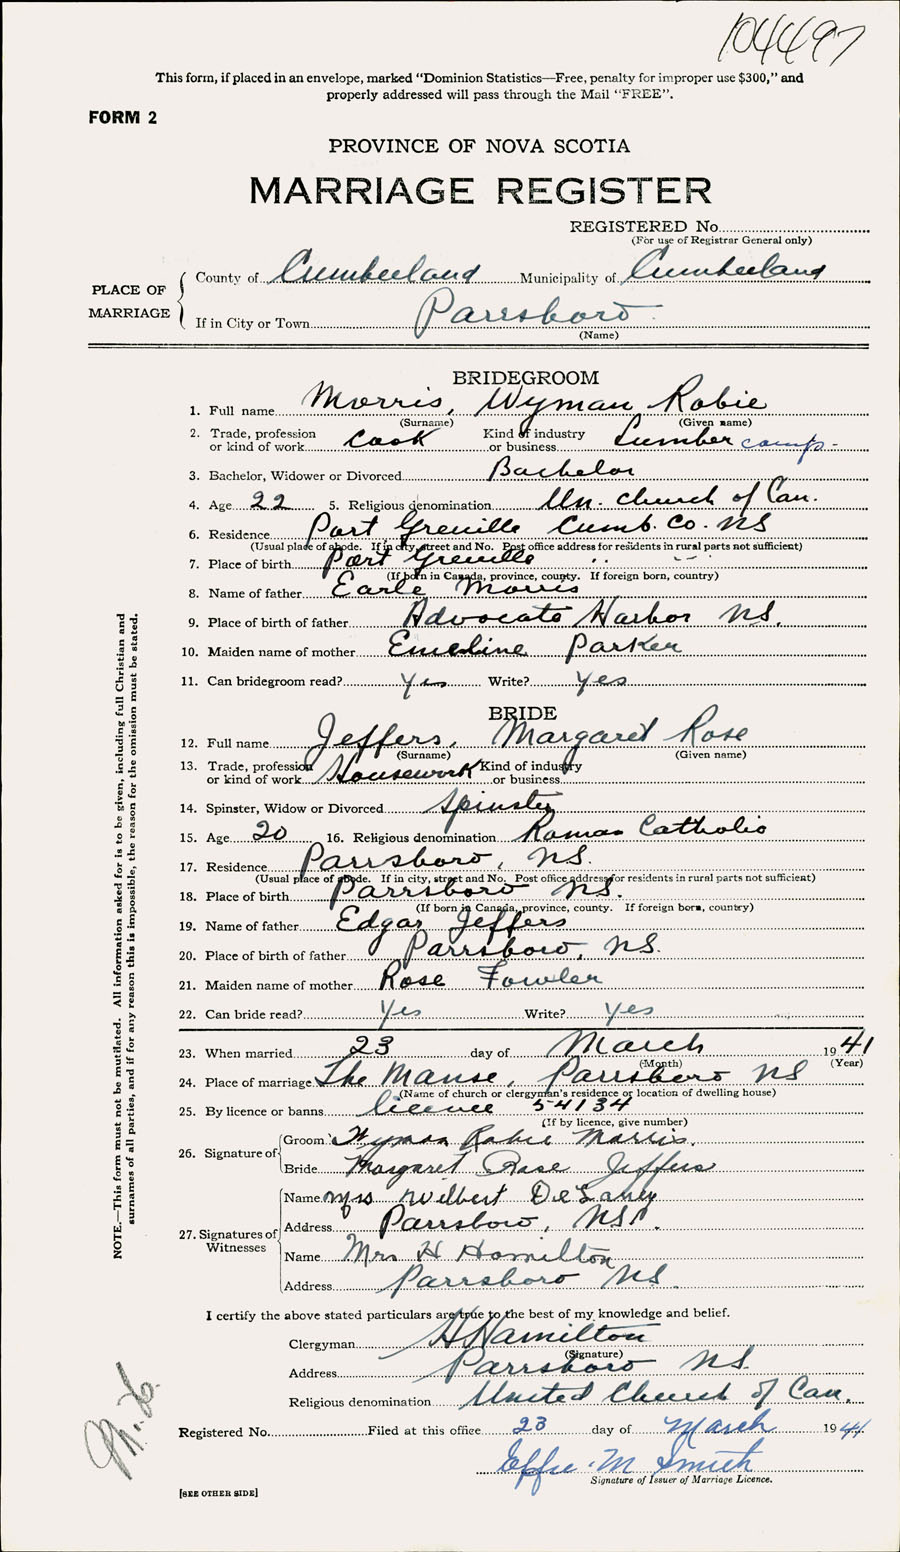 104497
This form, if placed in an envelope, marked “Dominion Statistics—Free, penalty for improper use $300,” and
properly addressed will pass through the Mail “FREE”.
FORM 2
PROVINCE OF NOVA SCOTIA
MARRIAGE REGISTER
REGISTERED No.
(For use of Registrar General only)
PLACE OF MARRIAGE
County of Cumberland Municipality of Cumberland
If in City or Town Parrsboro
(Name)
BRIDEGROOM
1. Full name Morris, Wyman Robie
(Surname) (Given name)
2. Trade, profession or kind of work Cook Kind of industry or business Lumber camp-
3. Bachelor, Widower or Divorced Bachelor
4. Age 22 5. Religious denomination Un. Church of Can.
6. Residence Port Greville Cumb. Co. NS
(Usual place of abode. If in city, street and No. Post office address for residents in rural parts not sufficient)
7. Place of birth Port Greville " "
(If born in Canada, province, county. If foreign born, country)
8. Name of father Earle Morris
9. Place of birth of father Advocate Harbor NS.
10. Maiden name of mother Emeline Parker
11. Can bridegroom read? yes Write? yes
BRIDE
12. Full name Jeffers, Margaret Rose
(Surname) (Given name)
13. Trade, profession or kind of work Housework Kind of industry or business
14. Spinster, Widow or Divorced Spinster
15. Age 20 16. Religious denomination Roman Catholic
17. Residence Parrsboro, NS.
(Usual place of abode. If in city, street and No. Post office address for residents in rural parts not sufficient)
18. Place of birth Parrsboro NS.
(If born in Canada, province, county. If foreign born, country)
19. Name of father Edgar Jeffers
20. Place of birth of father Parrsboro, NS.
21. Maiden name of mother Rose Fowler
22. Can bride read? Yes Write? Yes
23. When married 23 day of March 1941
(Month) (Year)
24. Place of marriage The Manse, Parrsboro NS
(Name of church or clergyman's residence or location of dwelling house)
25. By licence or banns licence 54134
(If by licence, give number)
26. Signature of
Groom Wyman Robie Morris.
Bride Margaret Rose Jeffers
27. Signatures of Witnesses
Name Mrs Wilbert DeLaney
Address Parrsboro, NS.
Name Mrs H Hamilton
Address Parrsboro NS.
I certify the above stated particulars are true to the best of my knowledge and belief.
Clergyman H Hamilton
(Signature)
Address Parrsboro NS.
Religious denomination United Church of Can.
Registered No. Filed at this office 23 day of March 1941
Effie M Smith
Signature of Issuer of Marriage Licence.
[SEE OTHER SIDE]
NOTE.—This form must not be mutilated. All information asked for is to be given, including full Christian and
surnames of all parties, and if for any reason this is impossible, the reason for the omission must be stated.